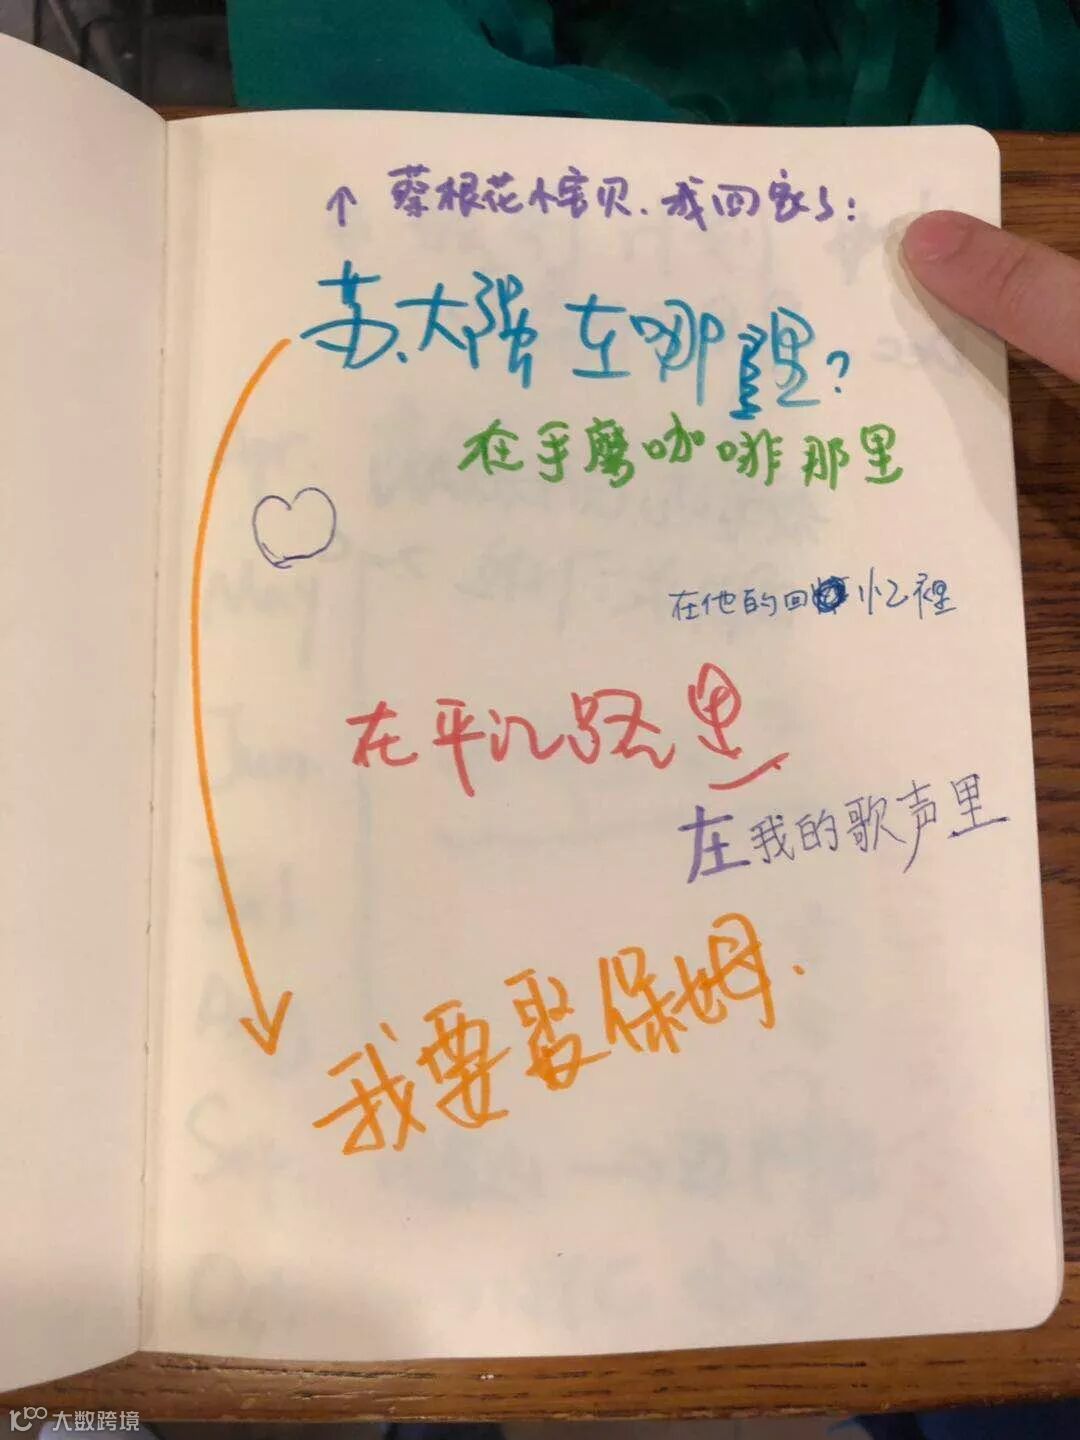 ↑ 蔡根花小宝贝、我回家了:
苏大强在哪里?
在手磨咖啡那里
在他的回忆裡
在平江路里
在我的歌声里
我要娶保姆.
大数跨境